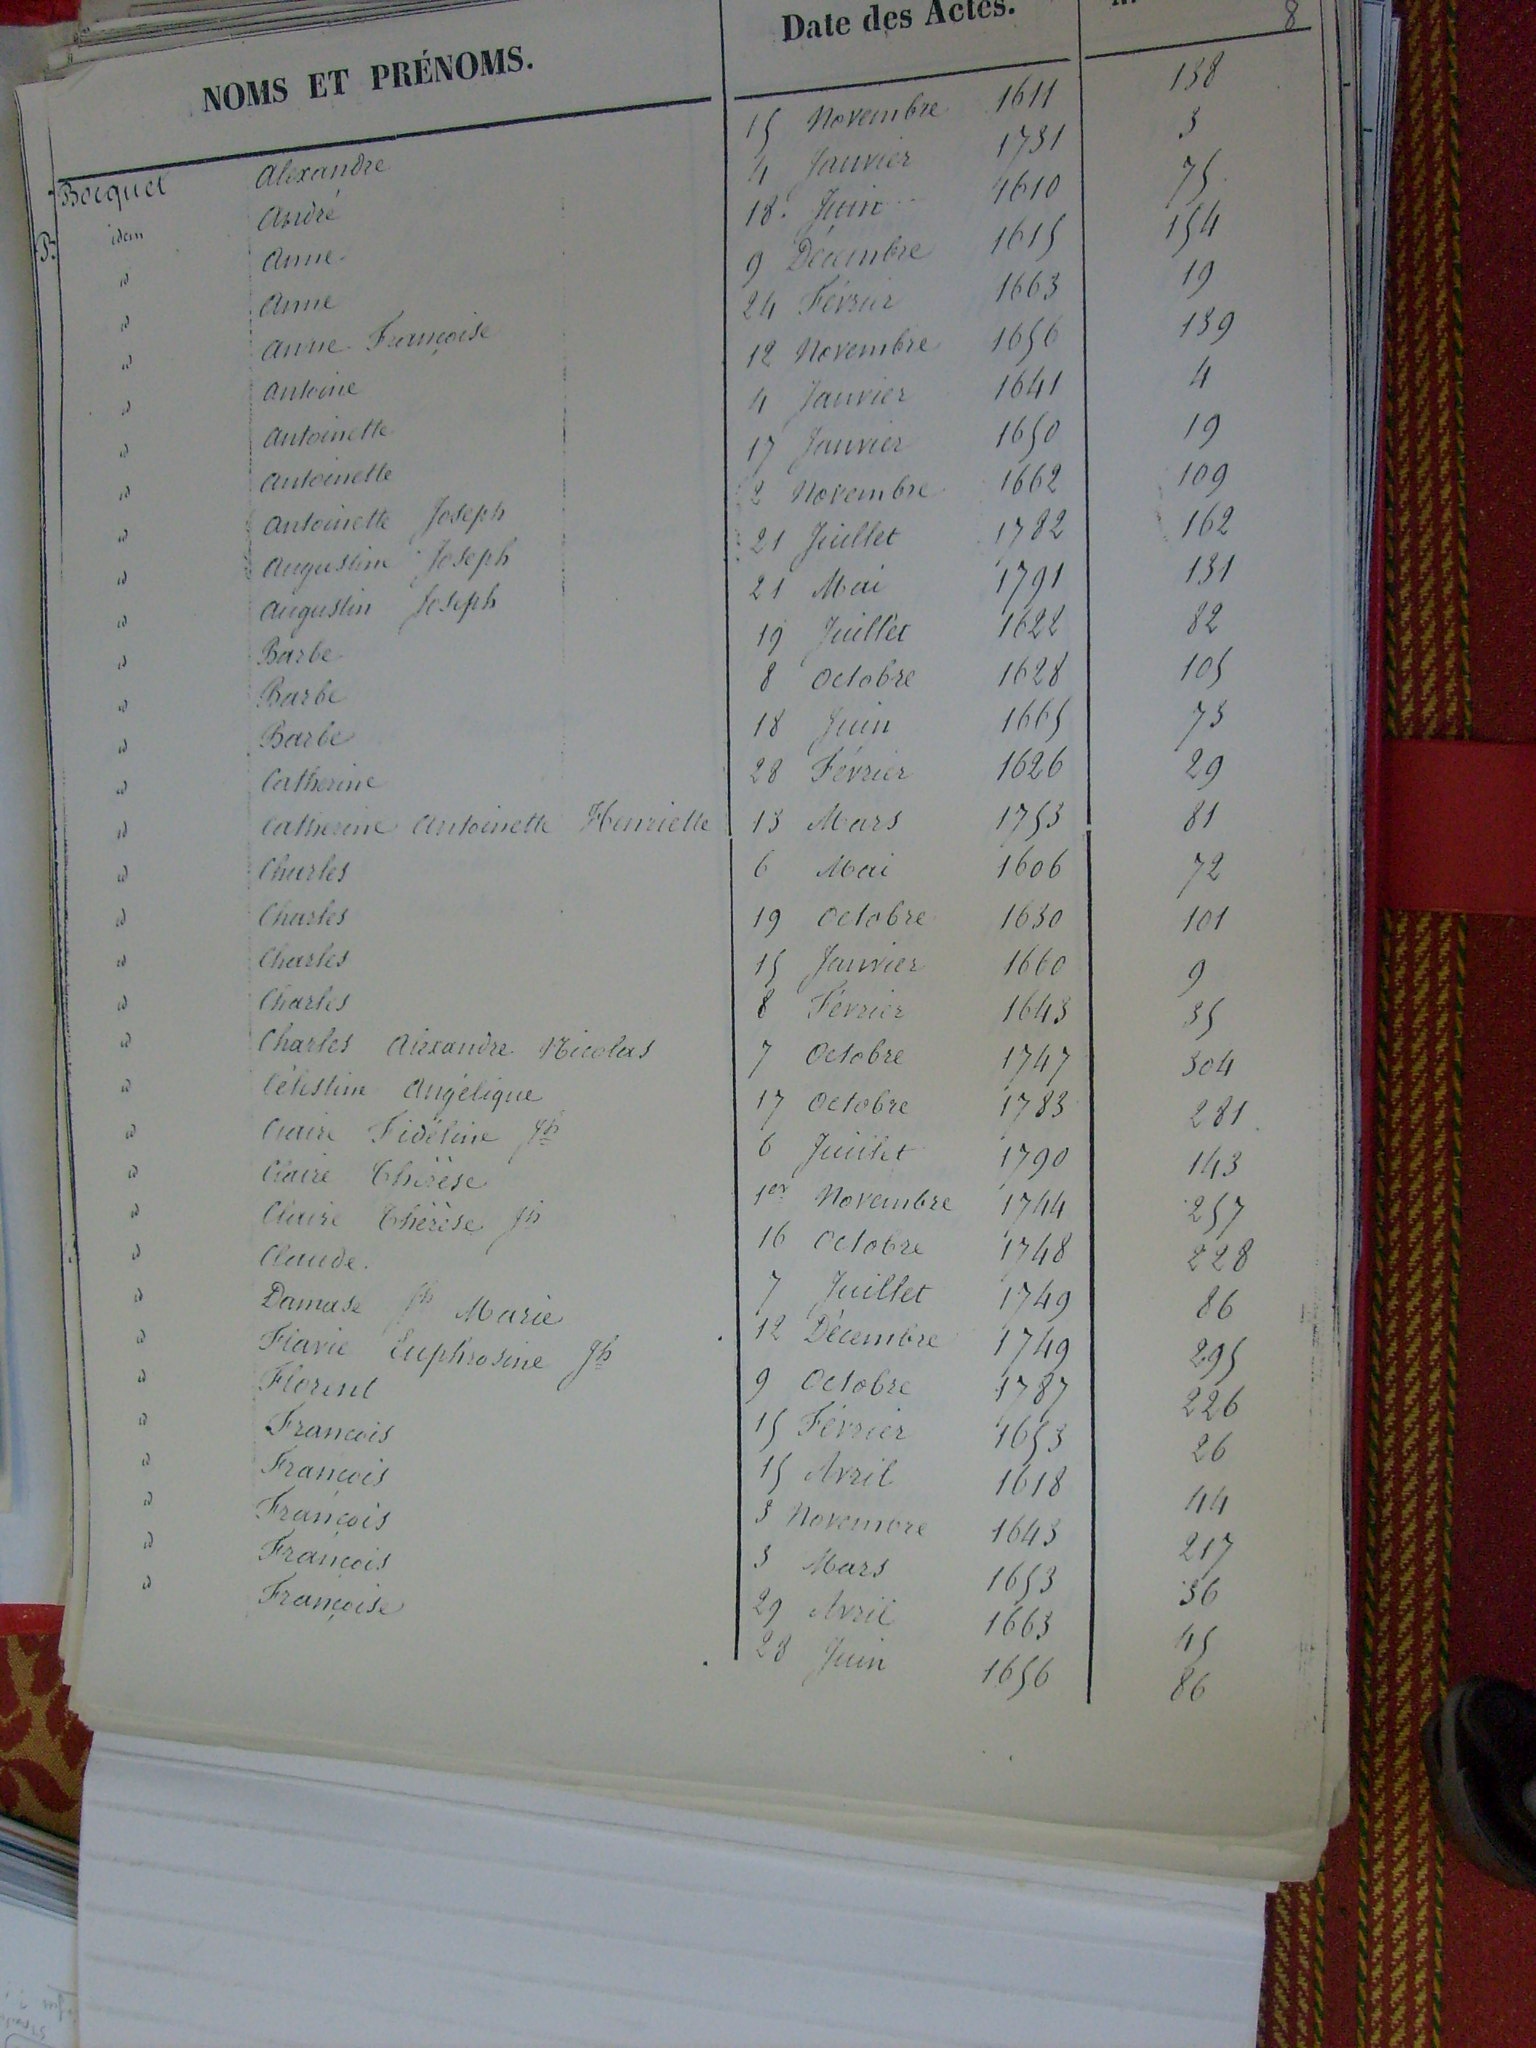 NOMS ET PRÉNOMS. Date des Actes. 8
Bocquet Alexandre 15 Novembre 1611 138
idem André 4 Janvier 1731 3
" Anne 18 Juin 1610 75
" Anne 9 Décembre 1615 154
" Anne Françoise 24 Février 1663 19
" Antoine 12 Novembre 1656 139
" Antoinette 4 Janvier 1641 4
" Antoinette 17 Janvier 1650 19
" Antoinette Joseph 2 Novembre 1662 109
" Augustine Joseph 21 Juillet 1782 162
" Augustin Joseph 21 Mai 1791 131
" Barbe 19 Juillet 1622 82
" Barbe 8 Octobre 1628 105
" Barbe 18 Juin 1665 73
" Catherine 28 Février 1626 29
" Catherine Antoinette Henriette 13 Mars 1753 81
" Charles 6 Mai 1606 72
" Charles 19 Octobre 1630 101
" Charles 15 Janvier 1660 9
" Charles 8 Février 1643 35
" Charles Alexandre Nicolas 7 Octobre 1747 304
" Célestine Angélique 17 Octobre 1783 281
" Claire Fidéline Jh 6 Juillet 1790 143
" Claire Thérèse 1er Novembre 1744 257
" Claire Thérèse Jh 16 Octobre 1748 228
" Claude. 7 Juillet 1749 86
" Damase Jh Marie 12 Décembre 1749 295
" Flavie Euphrosine Jh 9 Octobre 1787 226
" Florent 15 Février 1653 26
" François 15 Avril 1618 44
" François 3 Novembre 1643 217
" François 3 Mars 1653 36
" François 29 Avril 1663 45
" Françoise 28 Juin 1656 86